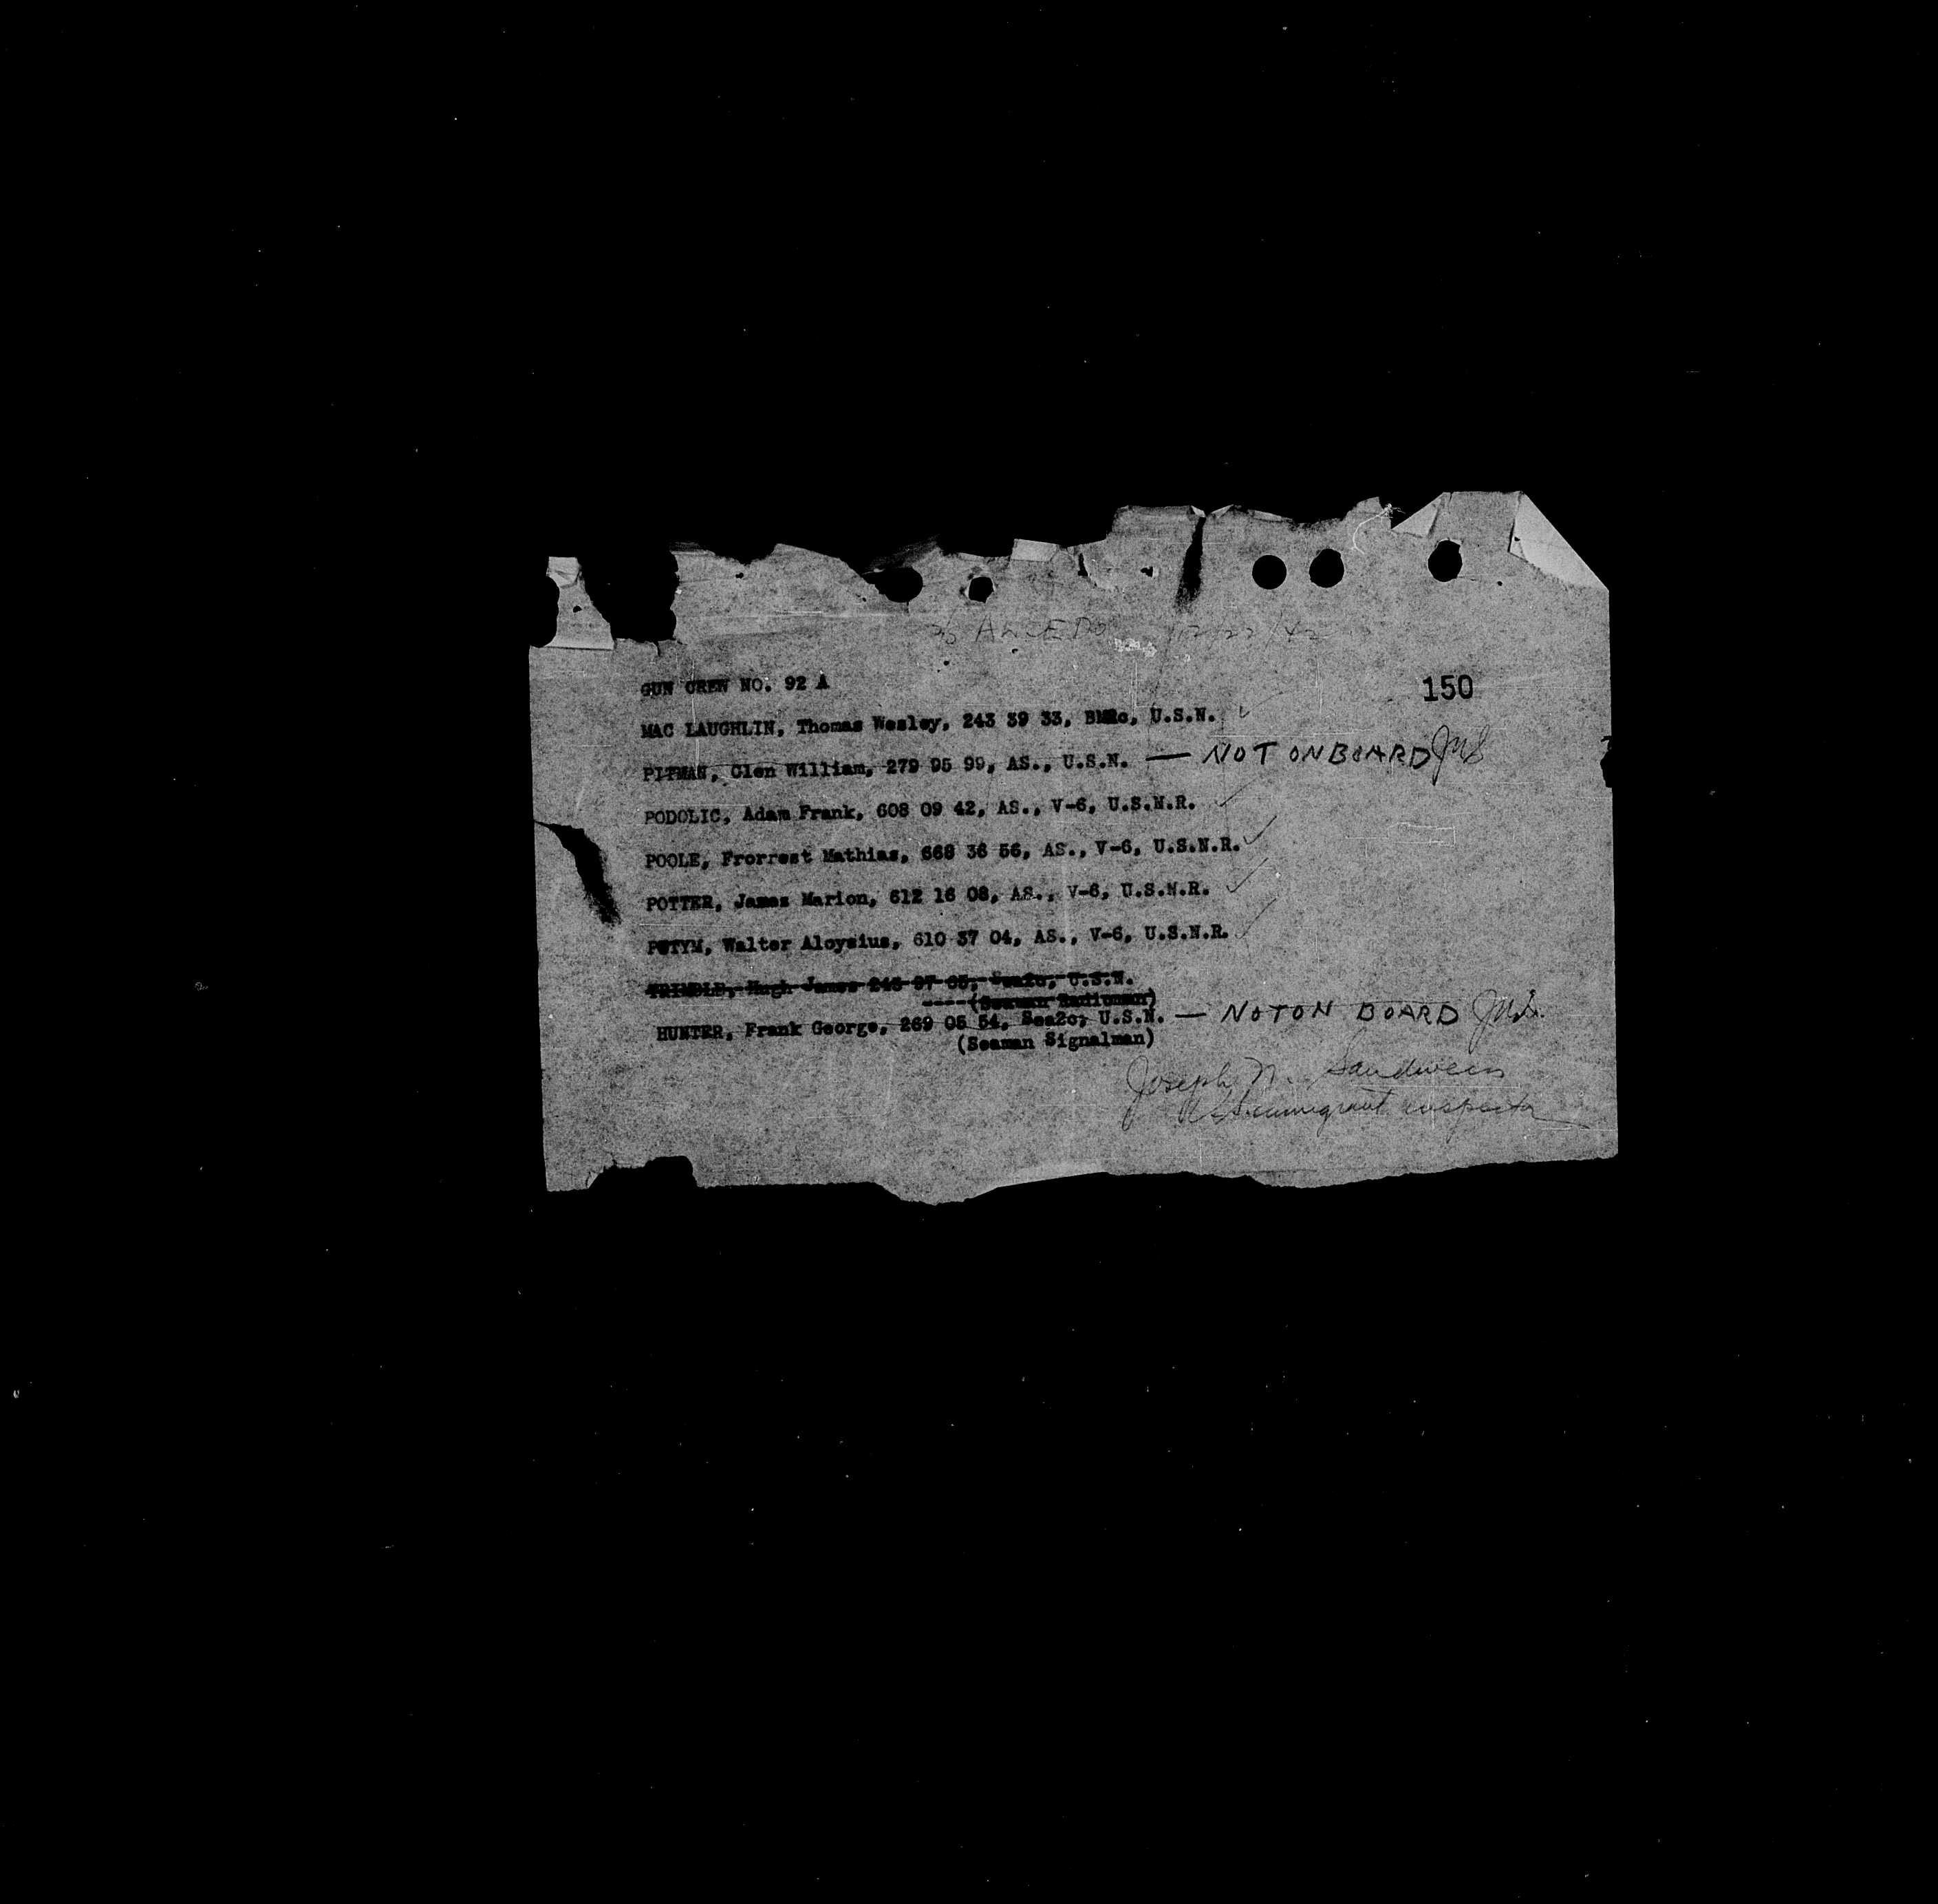 12/22/42
GUN CREW NO. 92 A
150
MAC LAUGHLIN, Thomas Wesley, 243 39 33, BM2c, U.S.N. ✓
PITMAN, Glen William, 279 95 99, AS., U.S.N. — NOT ON BOARD JNS
PODOLIC, Adam Frank, 608 09 42, AS., V-6, U.S.N.R. ✓
POOLE, Frorrest Mathias, 668 36 56, AS., V-6, U.S.N.R. ✓
POTTER, James Marion, 612 16 08, AS., V-6, U.S.N.R. ✓
POTYM, Walter Aloysius, 610 37 04, AS., V-6, U.S.N.R. ✓
TRIMBLE, Hugh James U.S.N.
(Seaman Radioman)
HUNTER, Frank George, 269 05 54, Sea2c, U.S.N. — NOT ON BOARD JNS.
(Seaman Signalman)
Joseph N. Sandweis
US immigrant inspector